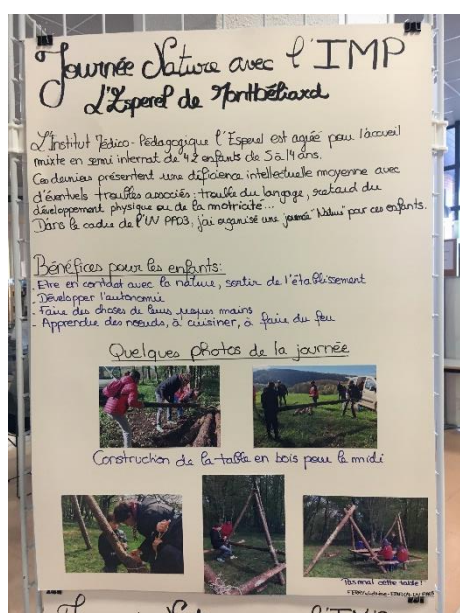 Journée Nature avec l'IMP
L'Esperel de Montbéliard
L'Institut Médico-Pédagogique l'Esperel est agréé pour l'accueil
mixte en semi internat de 42 enfants de 5 à 14 ans.
Ces derniers présentent une déficience intellectuelle moyenne avec
d'éventuels troubles associés : trouble du langage, retard du
développement physique ou de la motricité...
Dans le cadre de l'UV PP03, j'ai organisé une journée "Nature" pour ces enfants.
Bénéfices pour les enfants:
- Etre en contact avec la nature, sortir de l'établissement
- Développer l'autonomie
- Faire des choses de leurs propres mains
- Apprendre des nœuds, à cuisiner, à faire du feu
Quelques photos de la journée
Construction de la table en bois pour le midi
Pas mal cette table !
Journée l'IMP